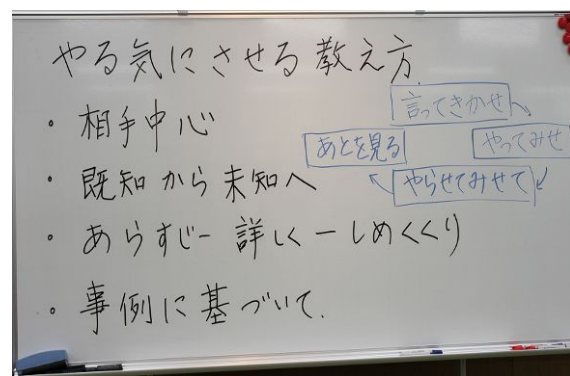 やる気にさせる教え方
・相手中心
・既知から未知へ
・あらすじー詳しくーしめくくり
・事例に基づいて.
言ってきかせ
やってみせ
やらせてみせて
あとを見る